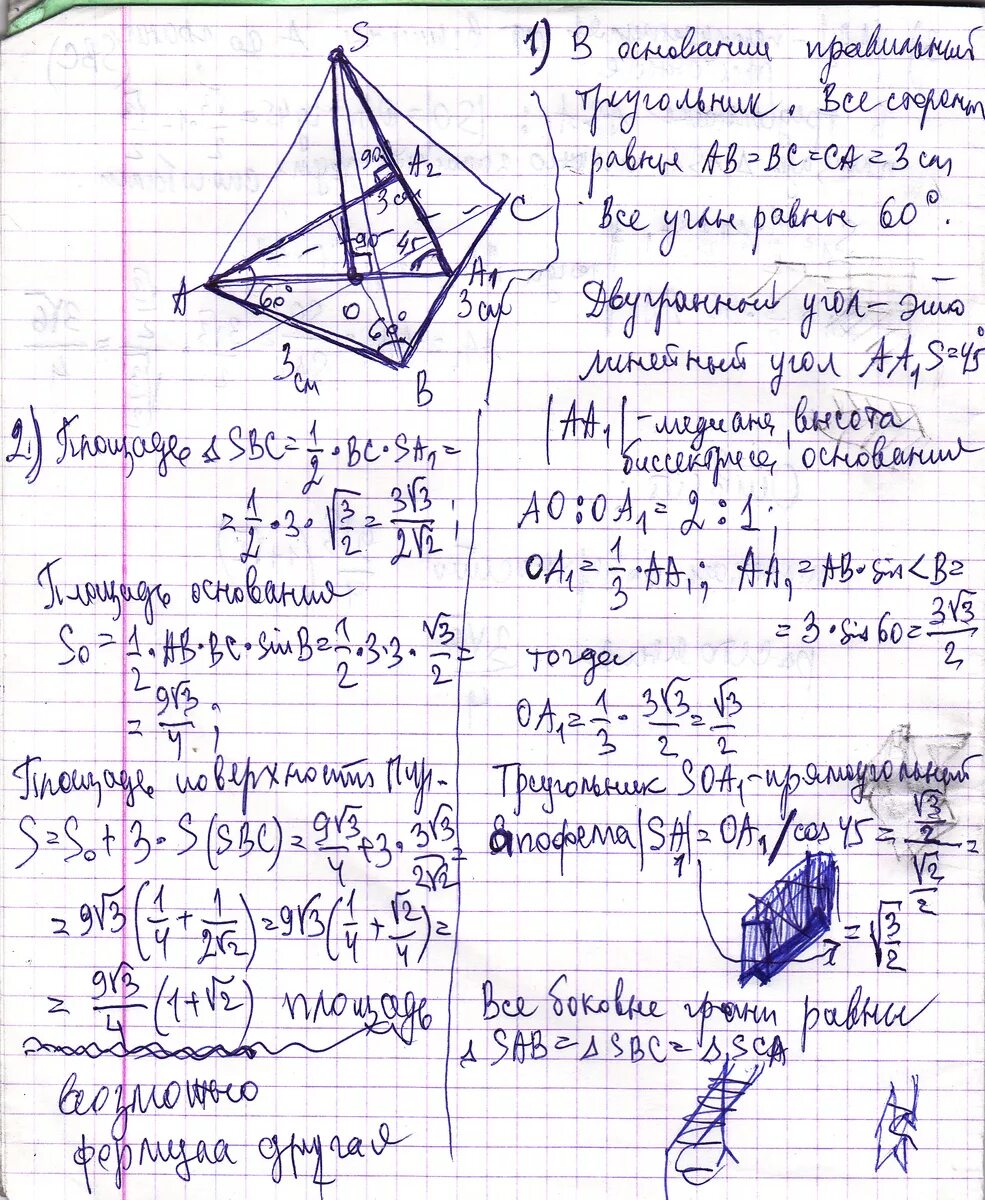 S
A₂
90
3 см
C
90
45
A
60°
O
A₁
3 см
60°
3 см
B
1) В основании правильный
треугольник. Все стороны
равные AB=BC=CA=3 см
Все углы равные 60°.
Двугранный угол – это
линейный угол AA₁S=45°
|AA₁| - медиана, высота
биссектриса основания
AO:OA₁=2:1;
OA₁=1/3·AA₁; AA₁=AB·sin<B=
=3·sin60=3√3/2
тогда
OA₁=1/3·3√3/2=√3/2
Треугольник SOA₁-прямоугольный
Апофема |SA₁|=OA₁/cos45=(√3/2)/(√2/2)=
=√(3/2)
Все боковые грани равны
△SAB=△SBC=△SCA
2.) Площадь △SBC=1/2·BC·SA₁=
=1/2·3·√(3/2)=3√3/(2√2);
Площадь основания
S₀=1/2·AB·BC·sinB=1/2·3·3·√3/2=
=9√3/4;
Площадь поверхности Пир.
S=S₀+3·S(SBC)=9√3/4+3·3√3/(2√2)=
=9√3(1/4+1/(2√2))=9√3(1/4+√2/4)=
=9√3/4(1+√2) площадь
возможно
формула другая